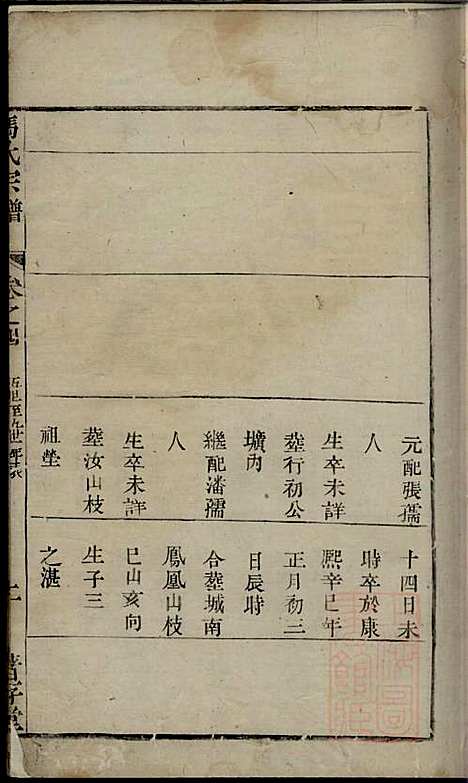 元配張孺
人
生卒未詳
塟行初公
壙內
繼配潘孺
人
生卒未詳
塟汝山枝
祖塋
十四日未
時卒於康
熙辛巳年
正月初三
日辰時
合塟城南
鳳凰山枝
巳山亥向
生子三
之湛
馮氏宗譜
卷之
五世至九世